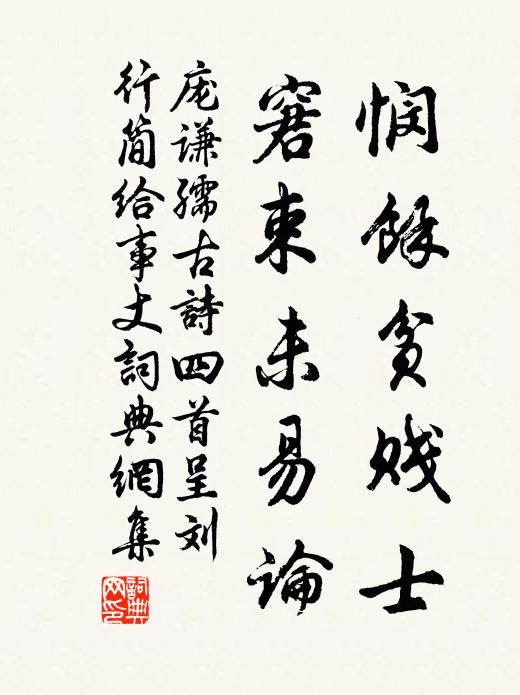 悯馀贫贱士
窘束未易论
庞谦孺古詩四首呈刘
行简给事丈詞典網集
詞典網印